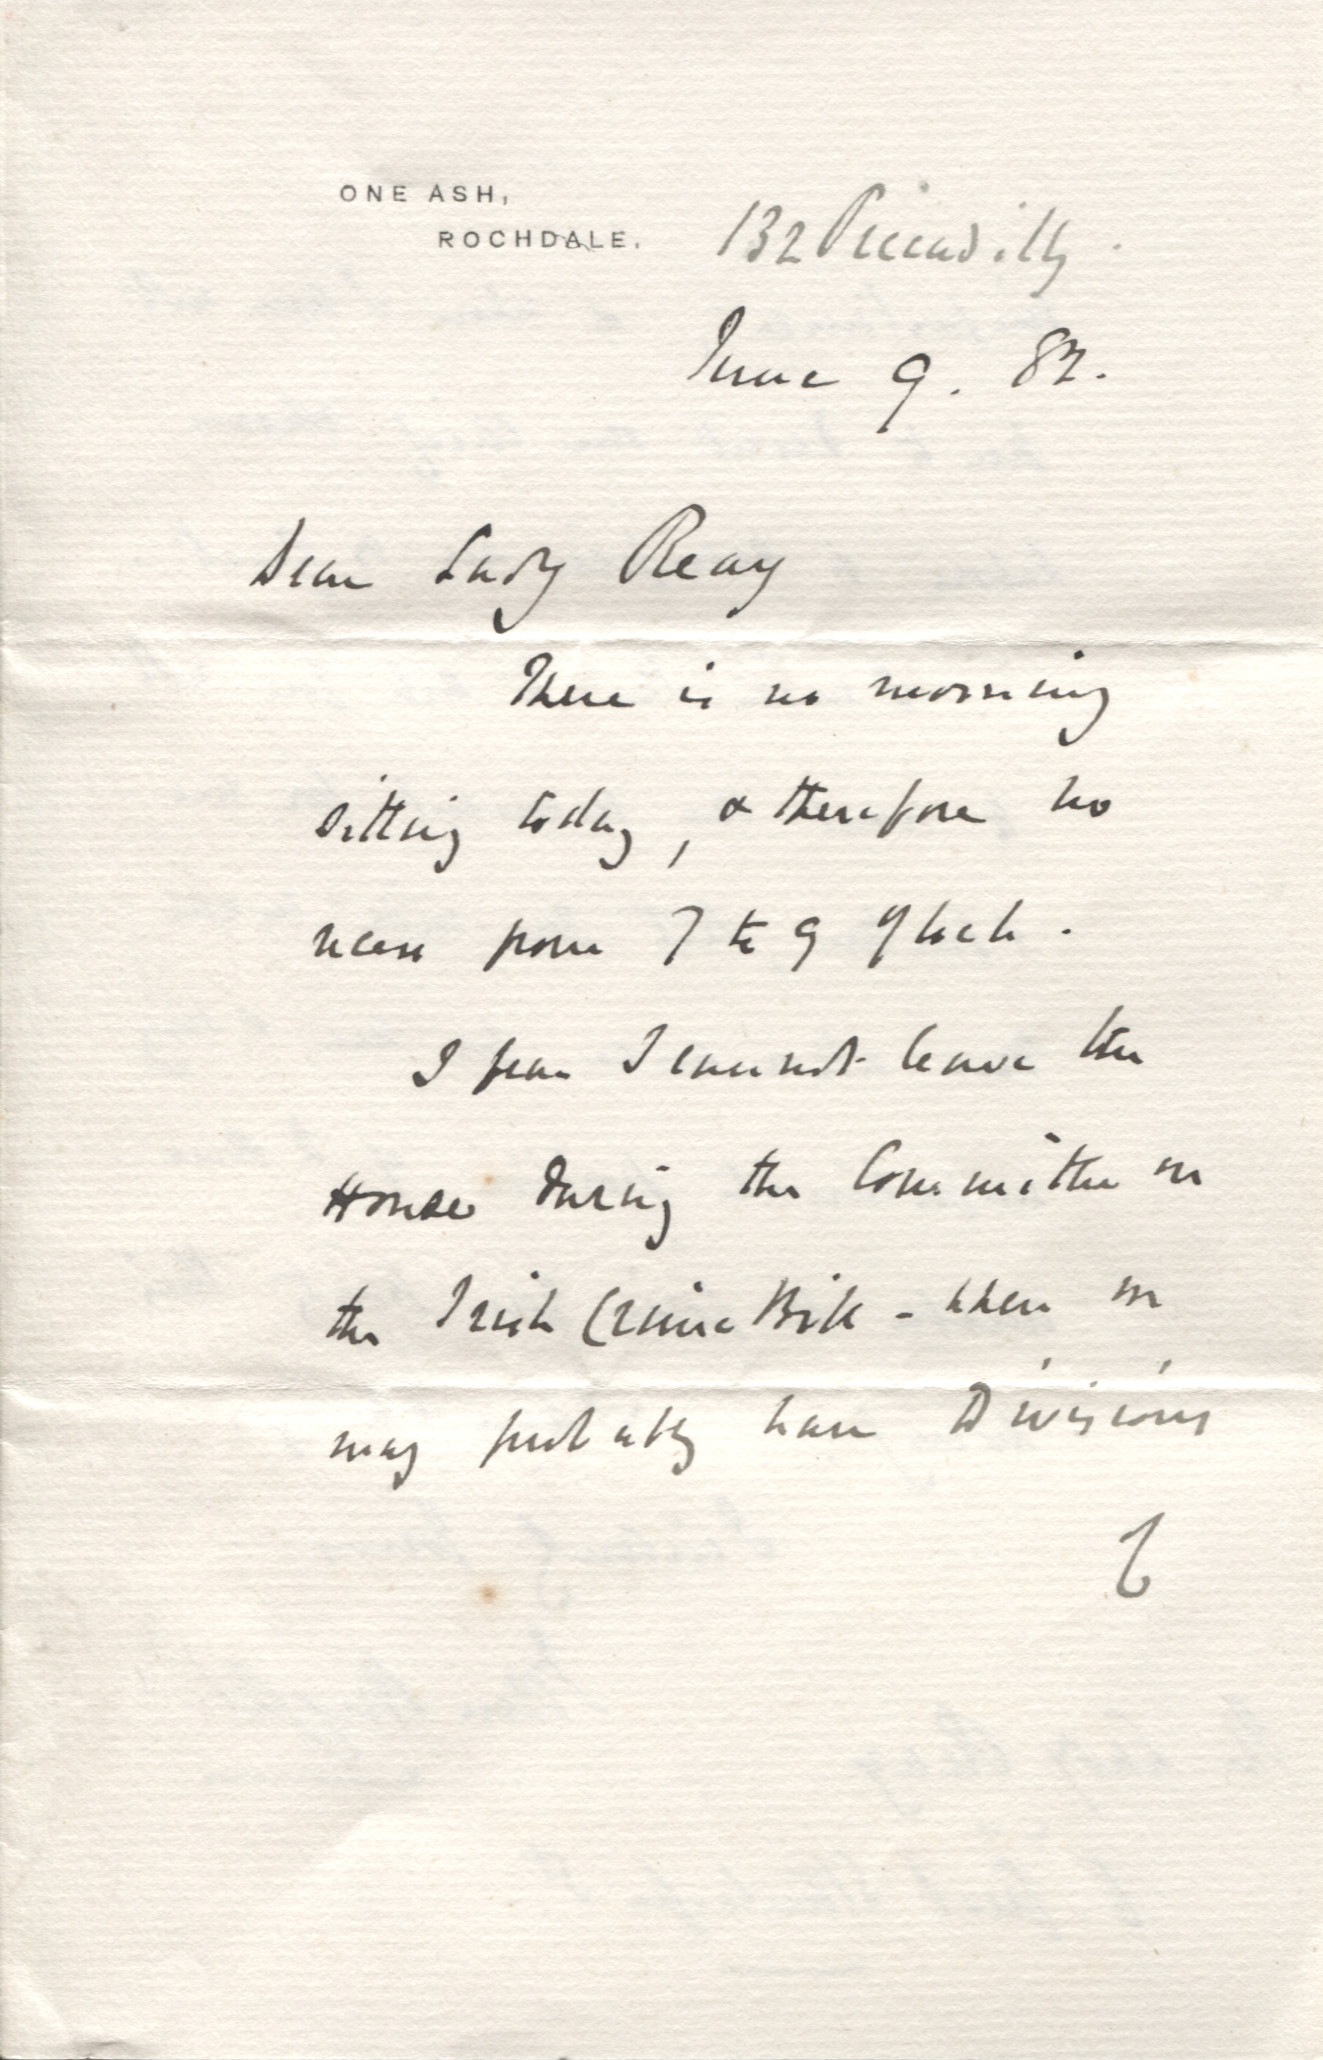 ONE ASH,
ROCHDALE.
132 Piccadilly.
June 9. 82.
Dear Lady Reay
There is no morning
sitting today, & therefore no
recess from 7 to 9 o'clock.
I fear I cannot leave the
House during the Committee on
the Irish Crime Bill - when we
may probably have Divisions